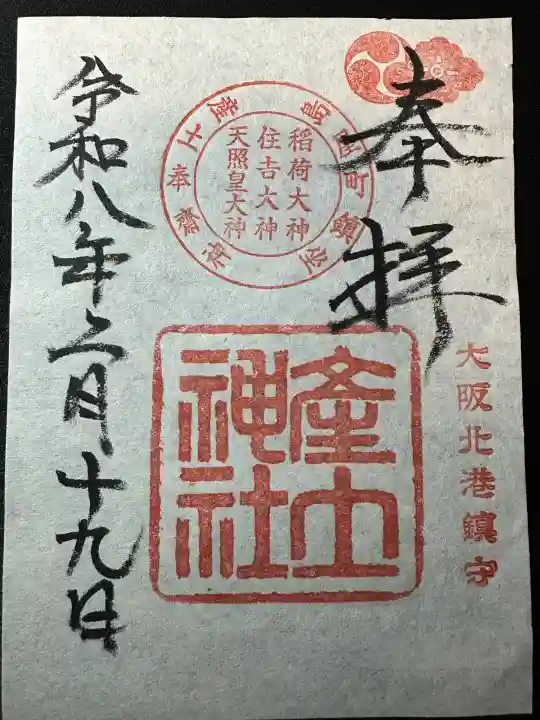 奉拝
大阪北港鎮守
稲荷大神
住吉大神
天照皇大神
産土奉齋神
産土神社
令和八年二月十九日